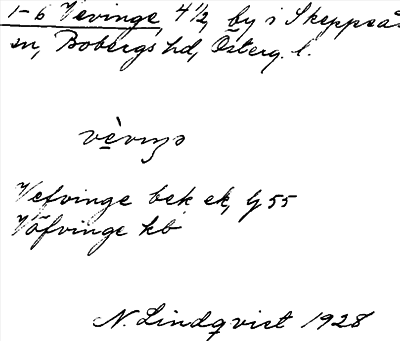 1-6 Vevinge 4 1/2, by i Skeppsås
sn, Bobergs hd, Österg. l.
vèvıŋə
Vefvinge bek ek, ly 55
Vöfvinge kb
N. Lindqvist 1928